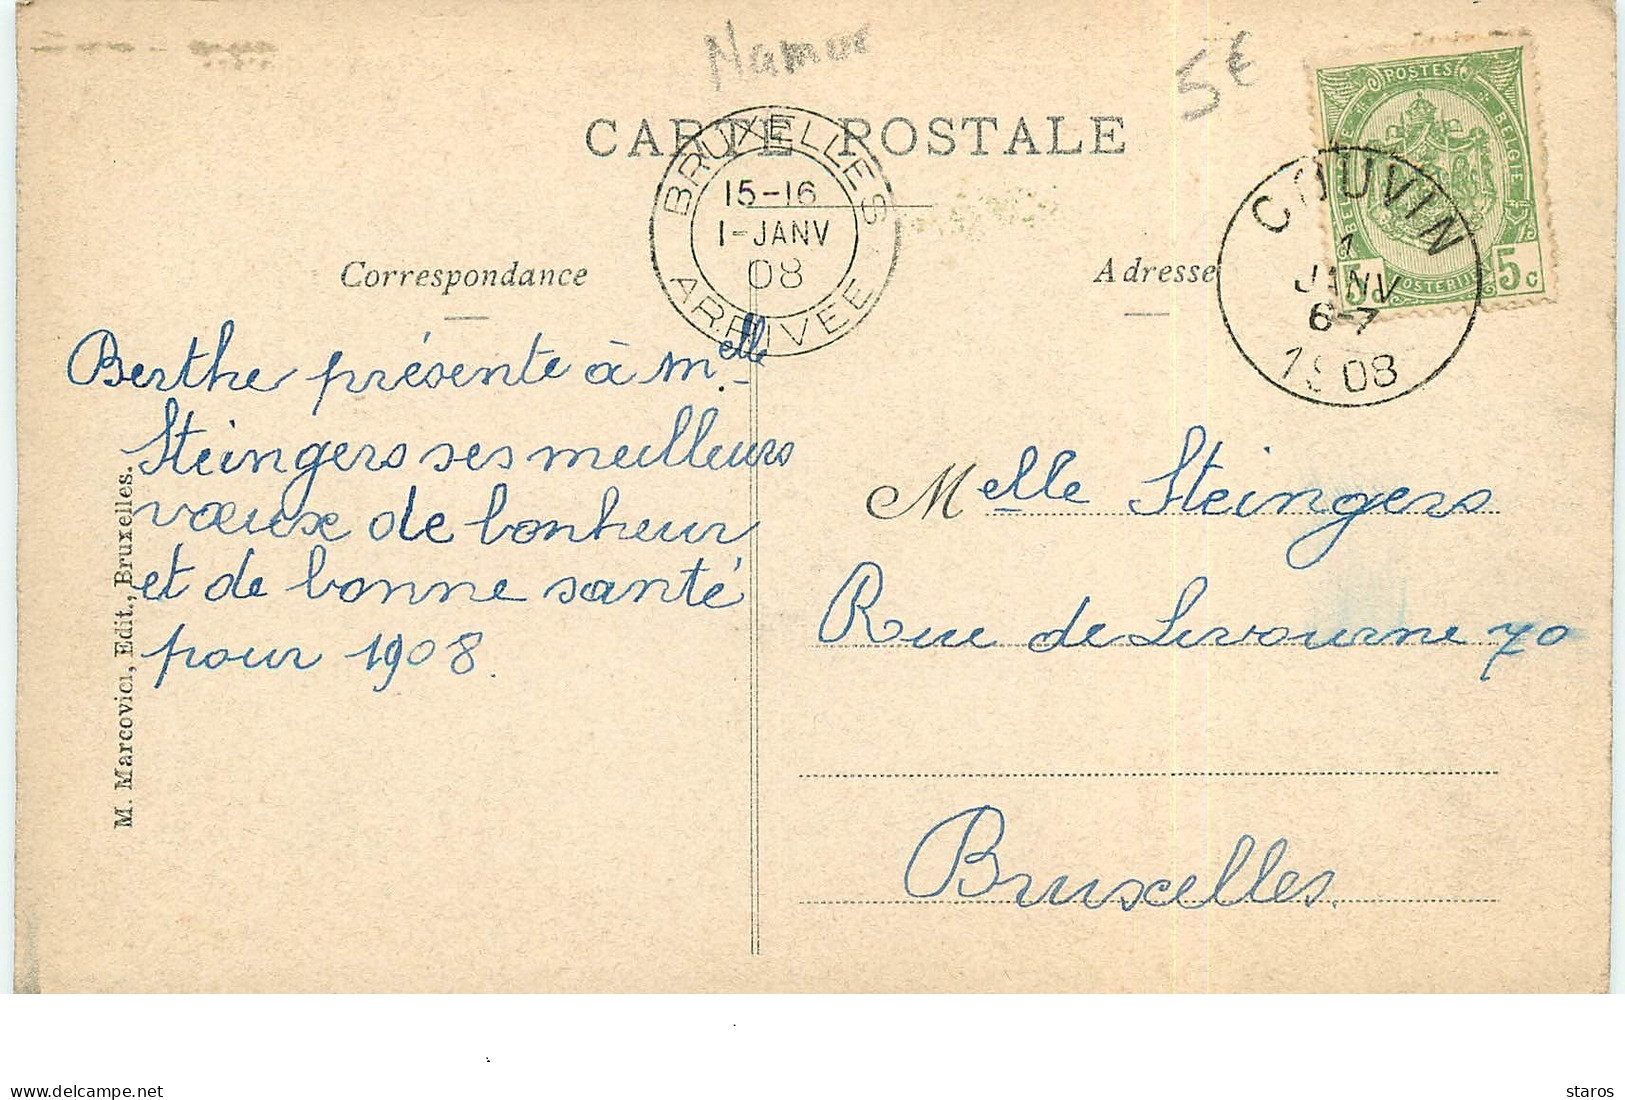 Namur
5€
CARTE POSTALE
BRUXELLES
15-16
1-JANV
08
ARRIVEE
POSTES
BELGIQUE
BELGIE
POSTERIJEN
5c
5c
COUVIN
1
JANV
6-7
1908
Correspondance
Adresse
Berthe présente à Melle
Steingers ses meilleurs
vœux de bonheur
et de bonne santé
pour 1908.
Melle Steingers
Rue de Livourne 70
Bruxelles.
M. Marcovici, Edit., Bruxelles.
delcampe.net
staros